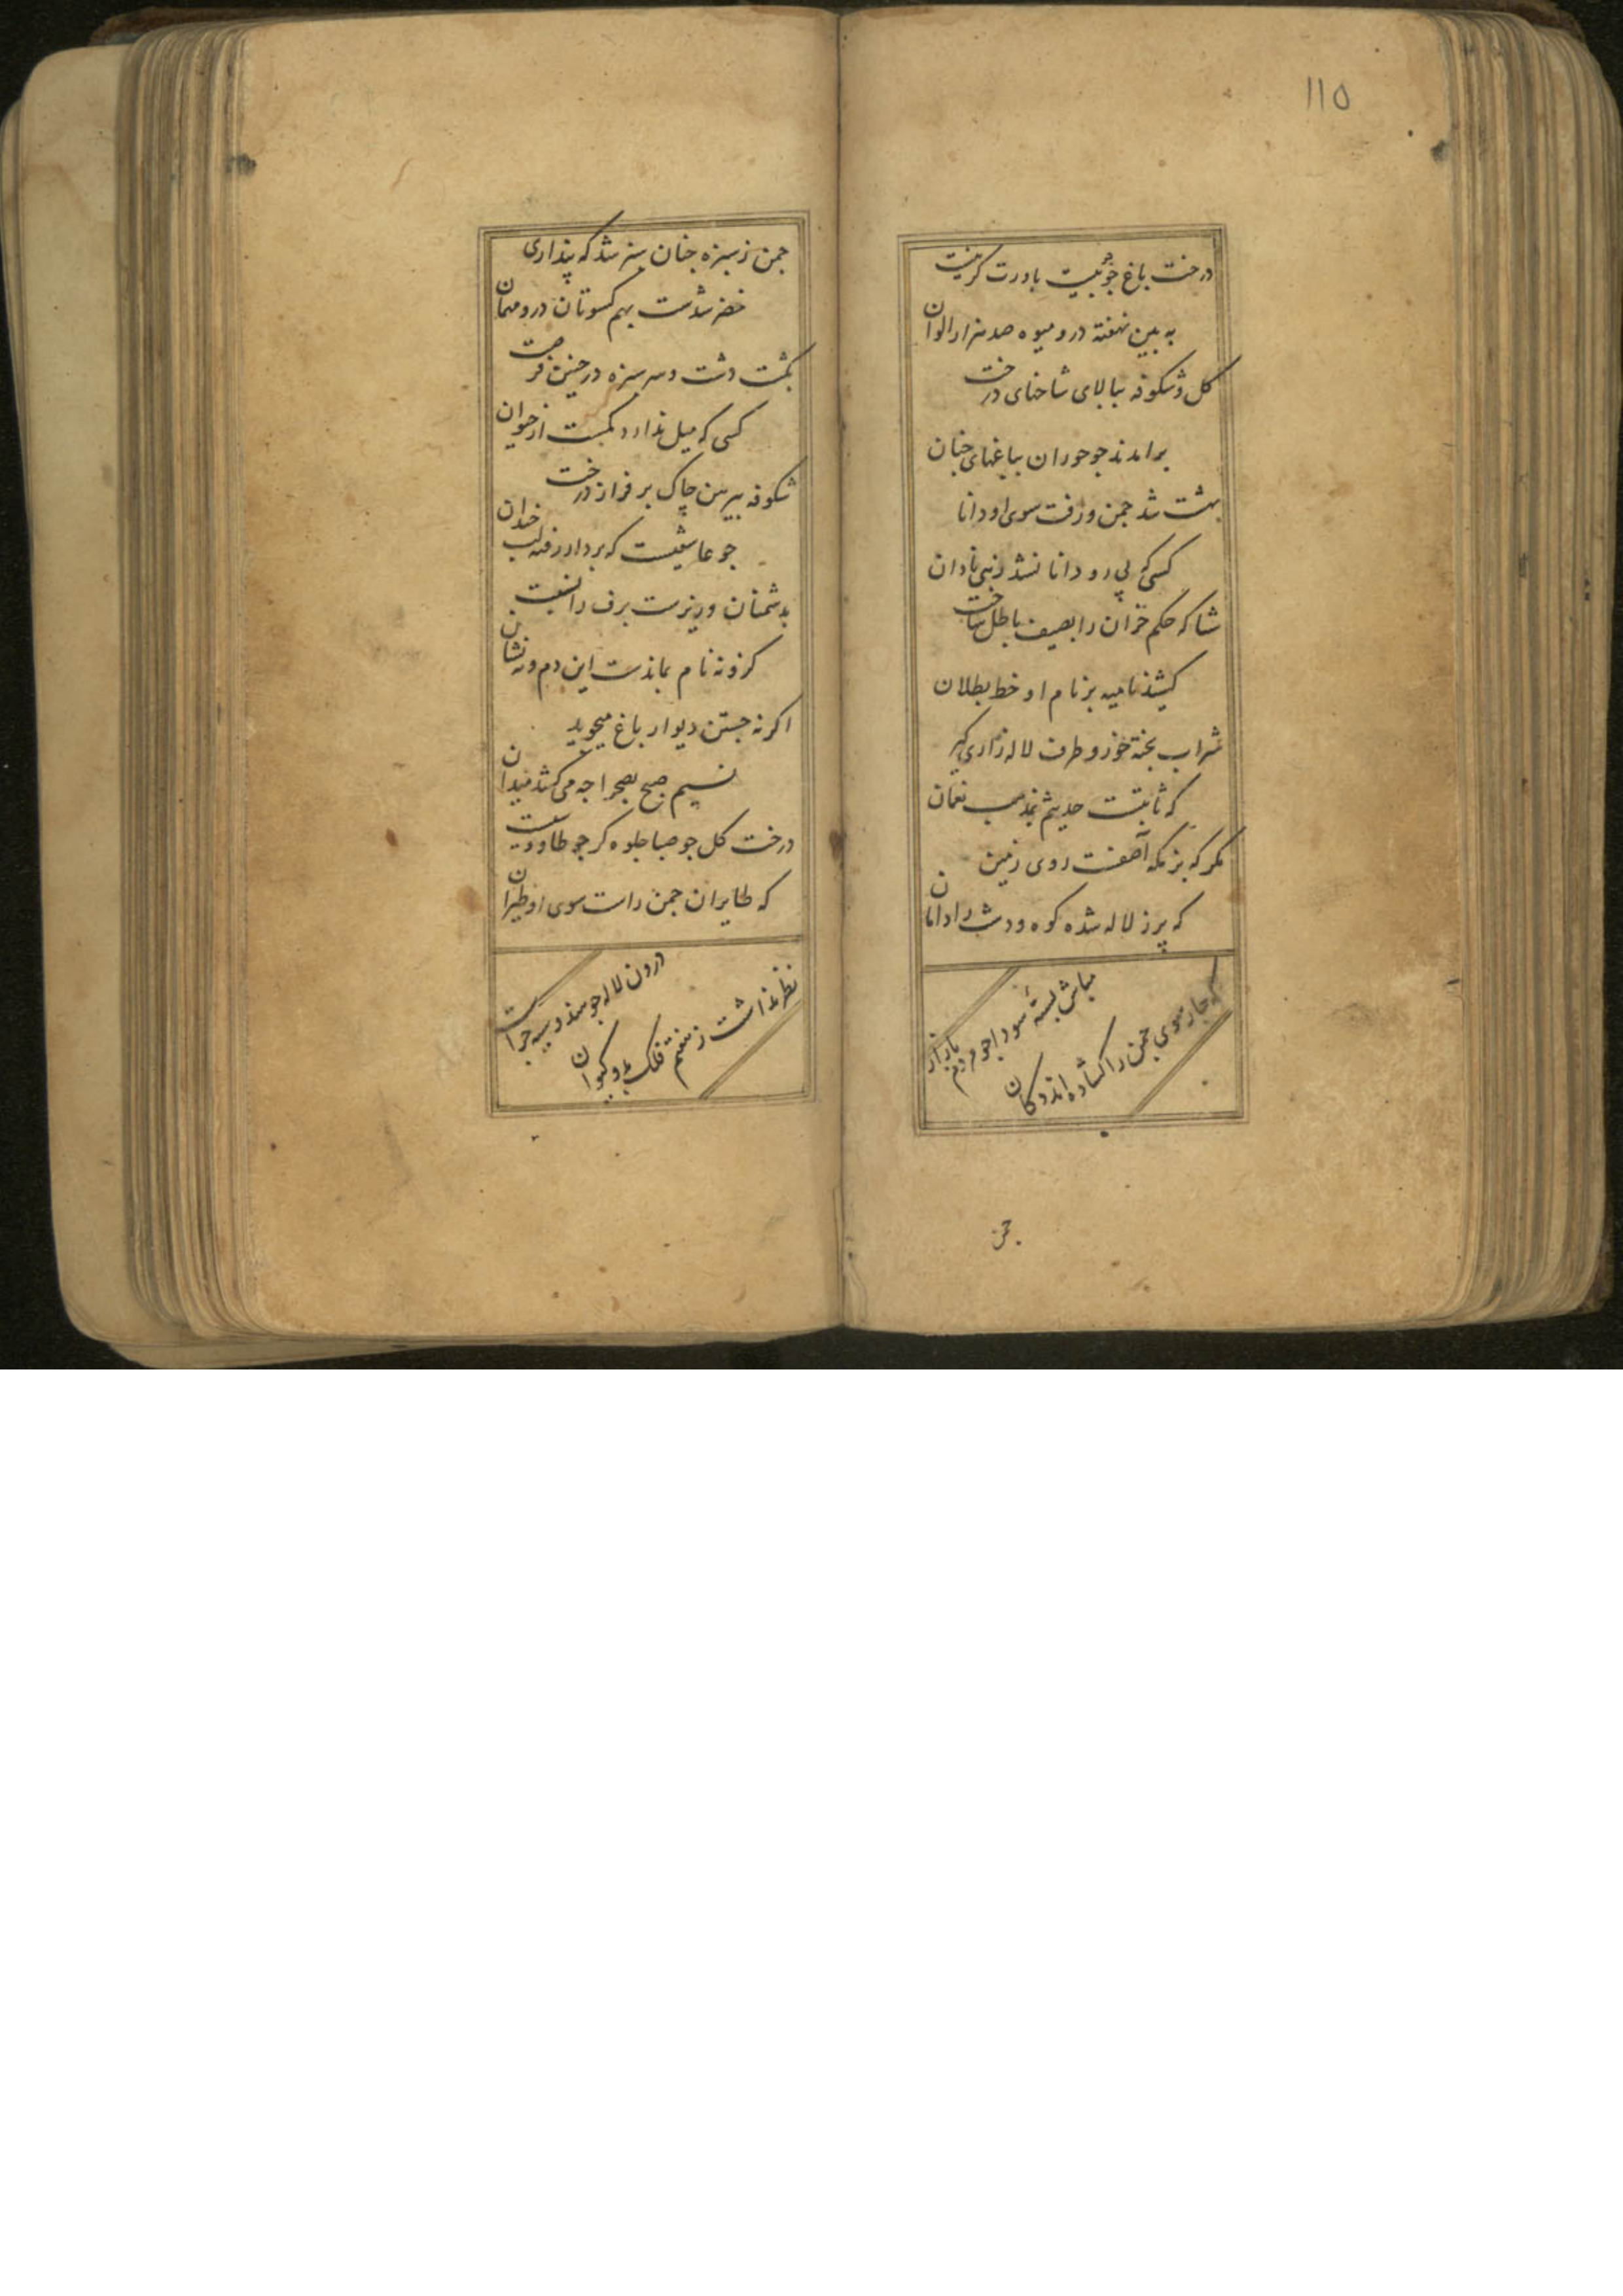 115
درخت باغ چو بیت باورت کر نیست
به بین نهفته درو میوه صد هزار الوان
کل و شکوفه ببالای شاخهای درخت
برامدند جو حوران بباغهای جنان
بهشت شد جمن و رفت سوی او دانا
کسی که پی رو دانا نشد زهی نادان
شتا که حکم خزان را بصیف باطل ساخت
کشید نامیه بر نام او خط بطلان
شراب پخته خور و طرف لاله زاری کیر
که ثابتست حدیثم بمذهب نعمان
مکر که بزمکه آصفست روی زمین
که پر ز لاله شده کوه و دشت را دامان
مباش بستهٔ سودا جو مردم بازار
که جار سوی جمن را کشاده اند دکان
جمن
جمن ز سبزه جنان سبز شد که پنداری
خضر شدست بهم کسوتان درو مهمان
بکشت دشت و سر سبزه در جنین فرصت
کسی که میل ندارد کمست از حیوان
شکوفه پیرهن چاک بر فراز درخت
جو عاشقیست که بر دار رفته لب خندان
بدشمنان وزیرست برف را نسبت
کزو نه نام بماندست این دم و نه نشان
اکر نه جستن دیوار باغ میجوید
نسیم صبح بصحرا جه می کشد میدان
درخت کل جو صبا جلوه کر جو طاووسیست
که طایران جمن راست سوی او طیران
درون لاله جو هندو سیه جراست
نظر نداشت ز هفتم فلک برو کیوان